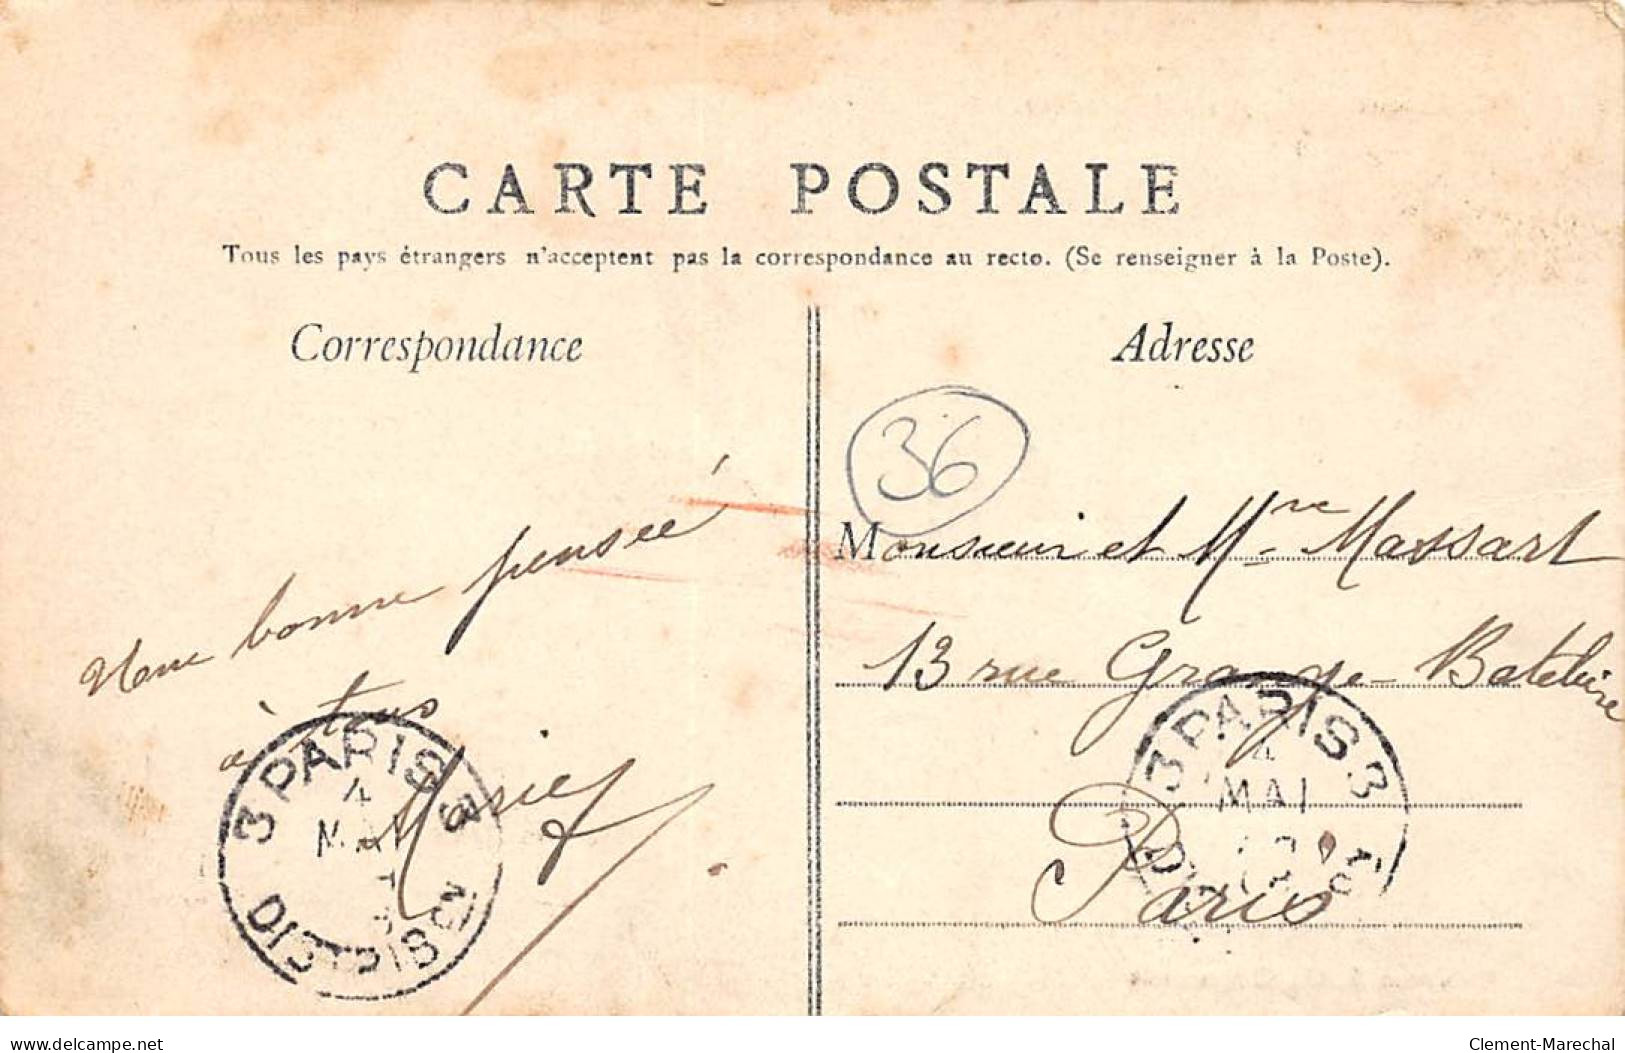 CARTE POSTALE
Tous les pays étrangers n'acceptent pas la correspondance au recto. (Se renseigner à la Poste).
Correspondance
Une bonne pensée
à tous
Marie
3 PARIS 3
4
MAI
DISTRIBON
Adresse
36
Monsieur et Mme Massart
13 rue Grange-Batelière
Paris
3 PARIS 3
4
MAI
delcampe.net
Clement-Marechal